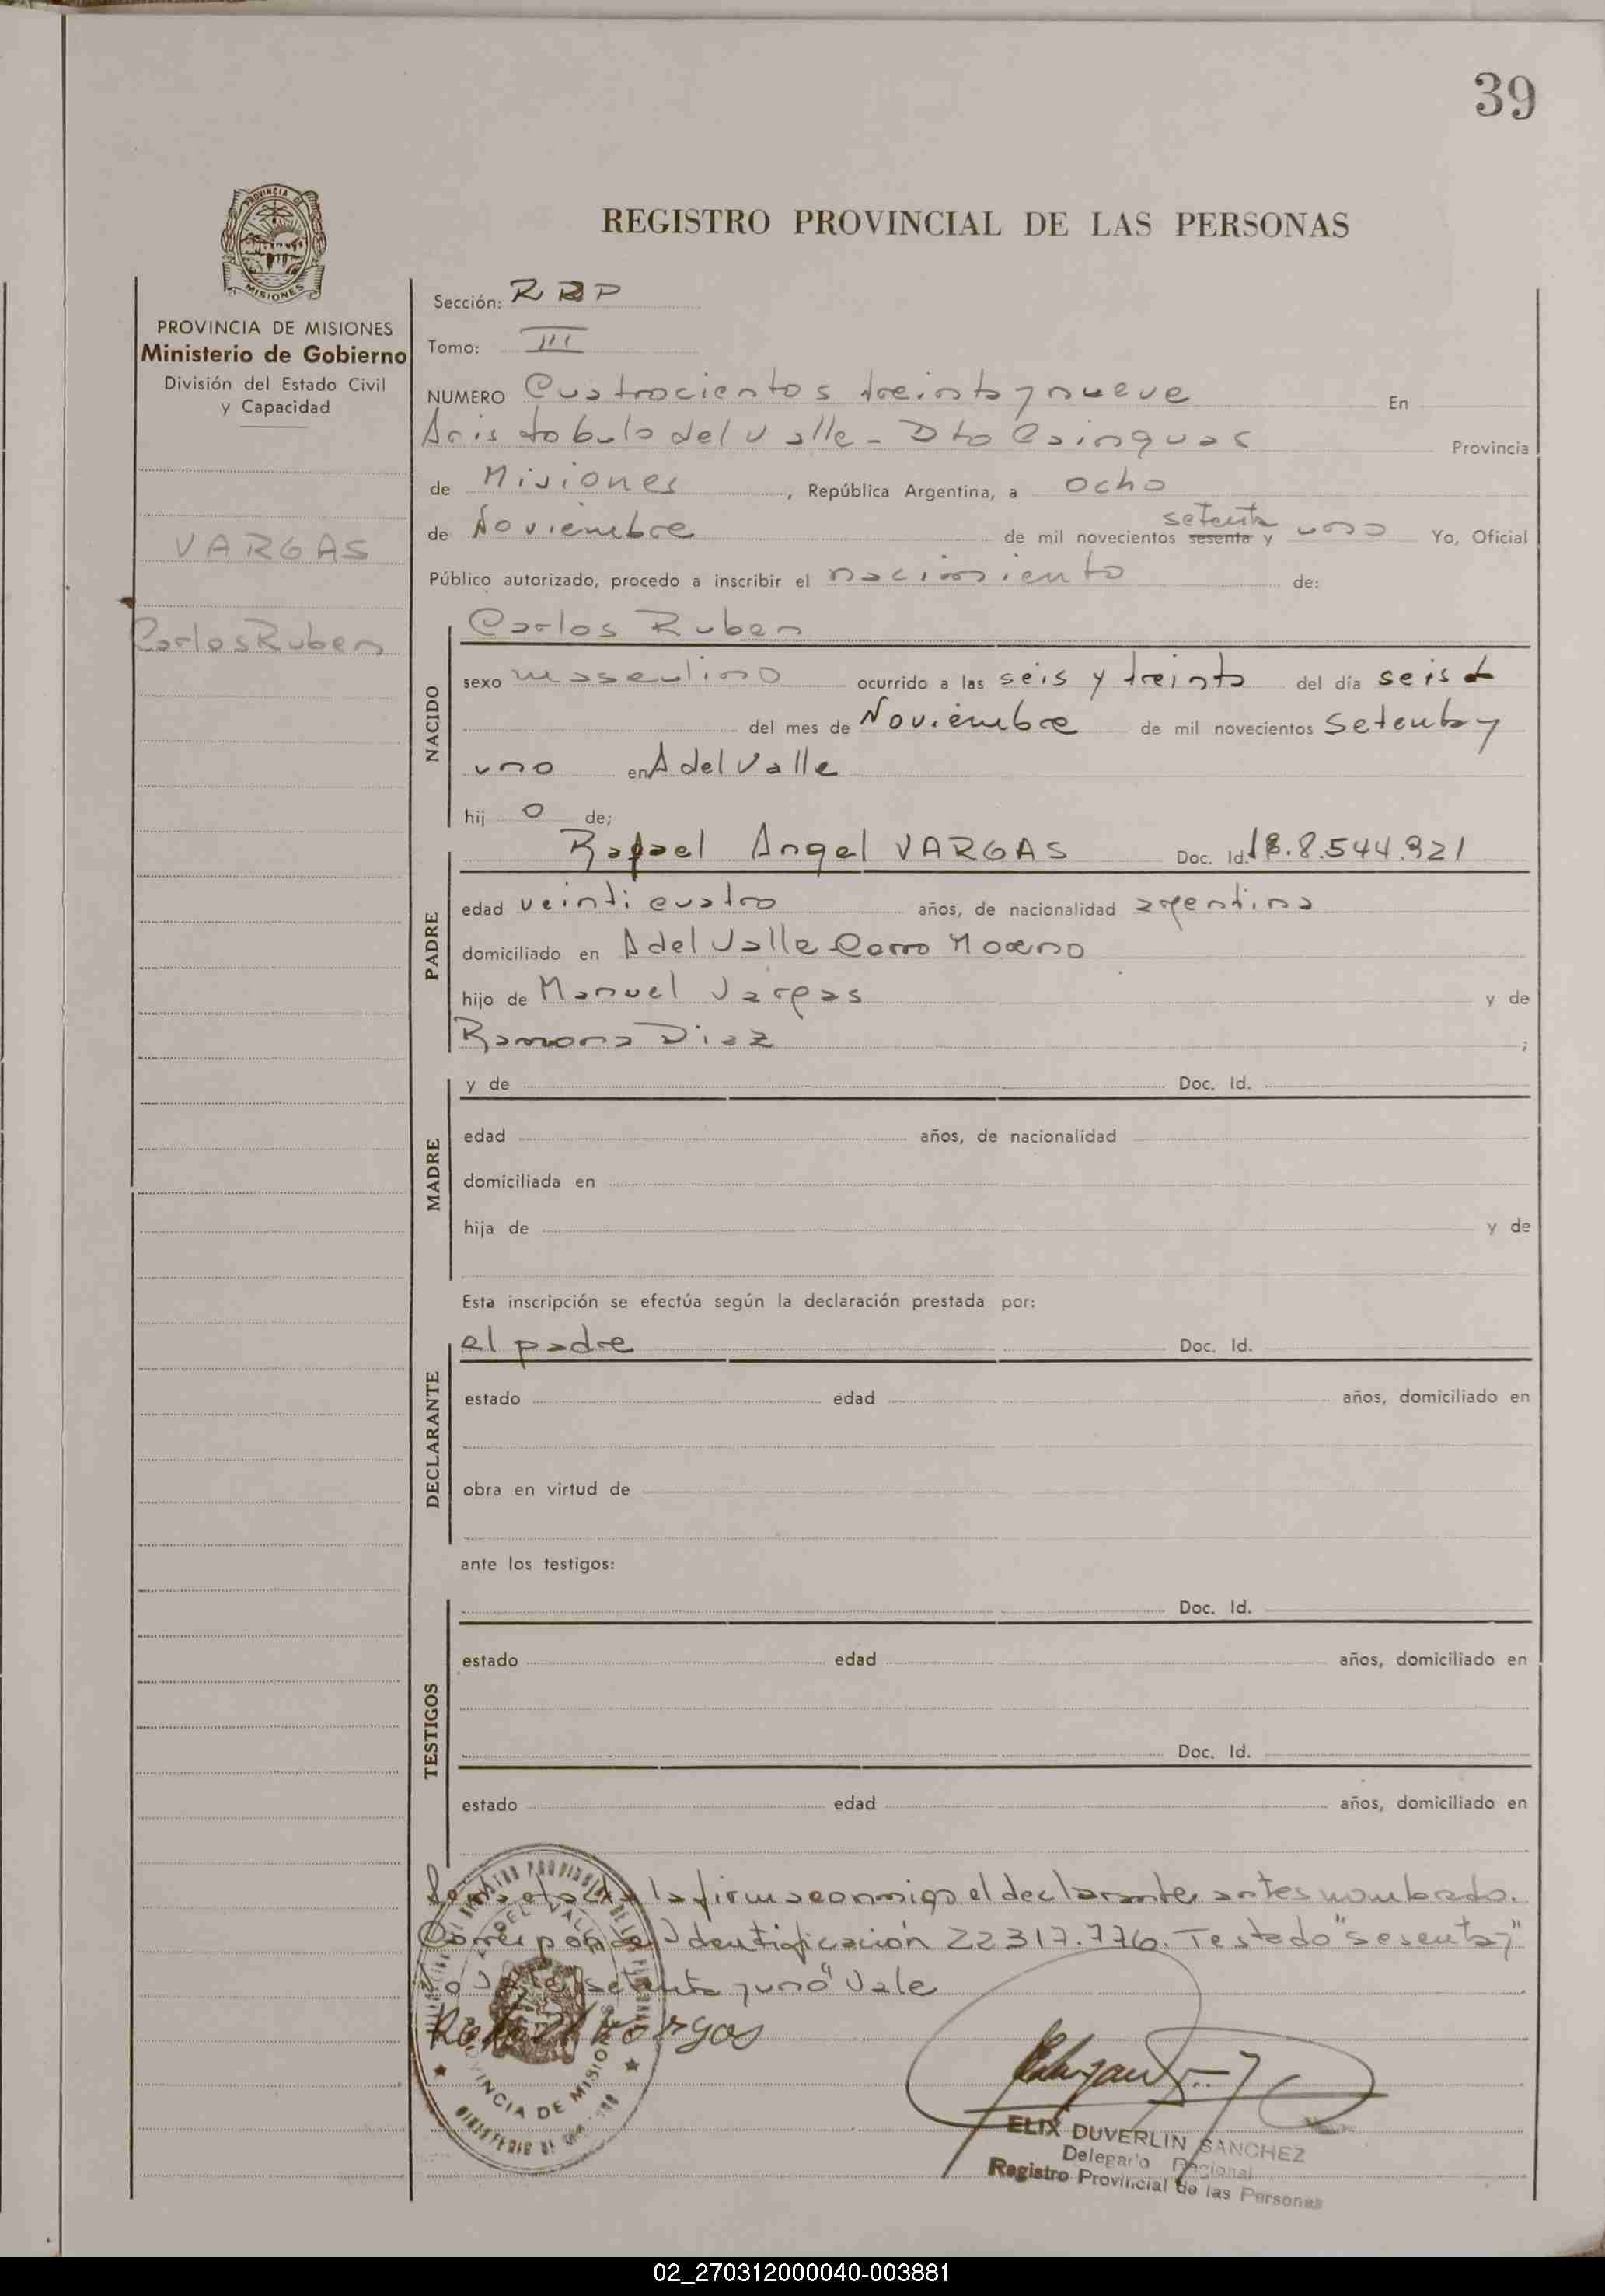 39
PROVINCIA
MISIONES
PROVINCIA DE MISIONES
Ministerio de Gobierno
División del Estado Civil
y Capacidad
VARGAS
Carlos Ruben
REGISTRO PROVINCIAL DE LAS PERSONAS
Sección:
Tomo: III
NUMERO Cuatrocientos treinta y nueve En
Aristobulo del Valle - Dto Cainguas Provincia
de Misiones, República Argentina, a ocho
de Noviembre de mil novecientos sesenta setenta y uno Yo, Oficial
Público autorizado, procedo a inscribir el nacimiento de:
NACIDO
Carlos Ruben
sexo masculino ocurrido a las seis y treinta del día seis
del mes de Noviembre de mil novecientos setenta y
uno en A del Valle
hij o de;
PADRE
Rafael Angel VARGAS Doc. Id. 8.544.321
edad veinticuatro años, de nacionalidad argentina
domiciliado en A del Valle Cerro Moreno
hijo de Manuel Vargas y de
Ramona Diaz ;
MADRE
y de Doc. Id.
edad años, de nacionalidad
domiciliada en
hija de y de
Esta inscripción se efectúa según la declaración prestada por:
DECLARANTE
el padre Doc. Id.
estado edad años, domiciliado en
obra en virtud de
ante los testigos:
TESTIGOS
Doc. Id.
estado edad años, domiciliado en
Doc. Id.
estado edad años, domiciliado en
la firma conmigo el declarante antes nombrado.
Corresponde Identificación 22317.776. Testado "sesenta y"
setenta y uno" Vale
Rafael Vargas
PROVINCIA DE MISIONES
ELIX DUVERLIN SANCHEZ
Delegado
Registro Provincial de las Personas
02_270312000040-003881